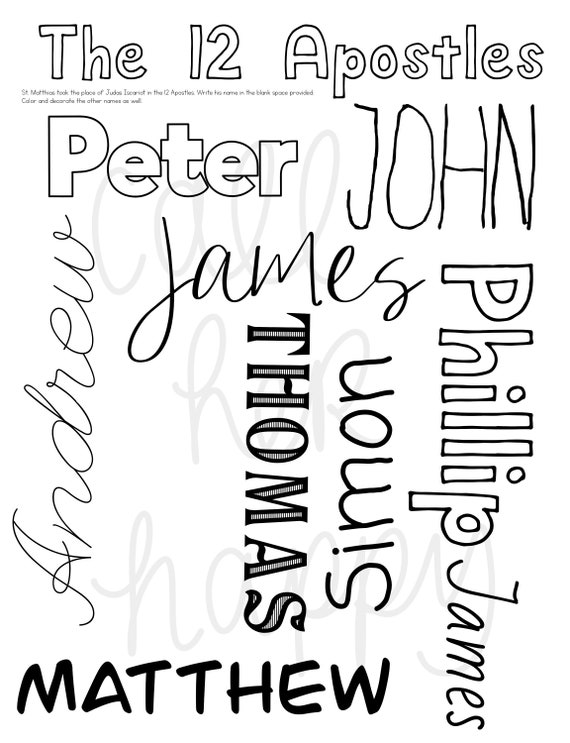 The 12 Apostles
St. Matthias took the place of Judas Iscariot in the 12 Apostles. Write his name in the blank space provided.
Color and decorate the other names as well.
Peter
JOHN
James
Andrew
THOMAS
Simon
Phillip
James
MATTHEW
call
her
happy